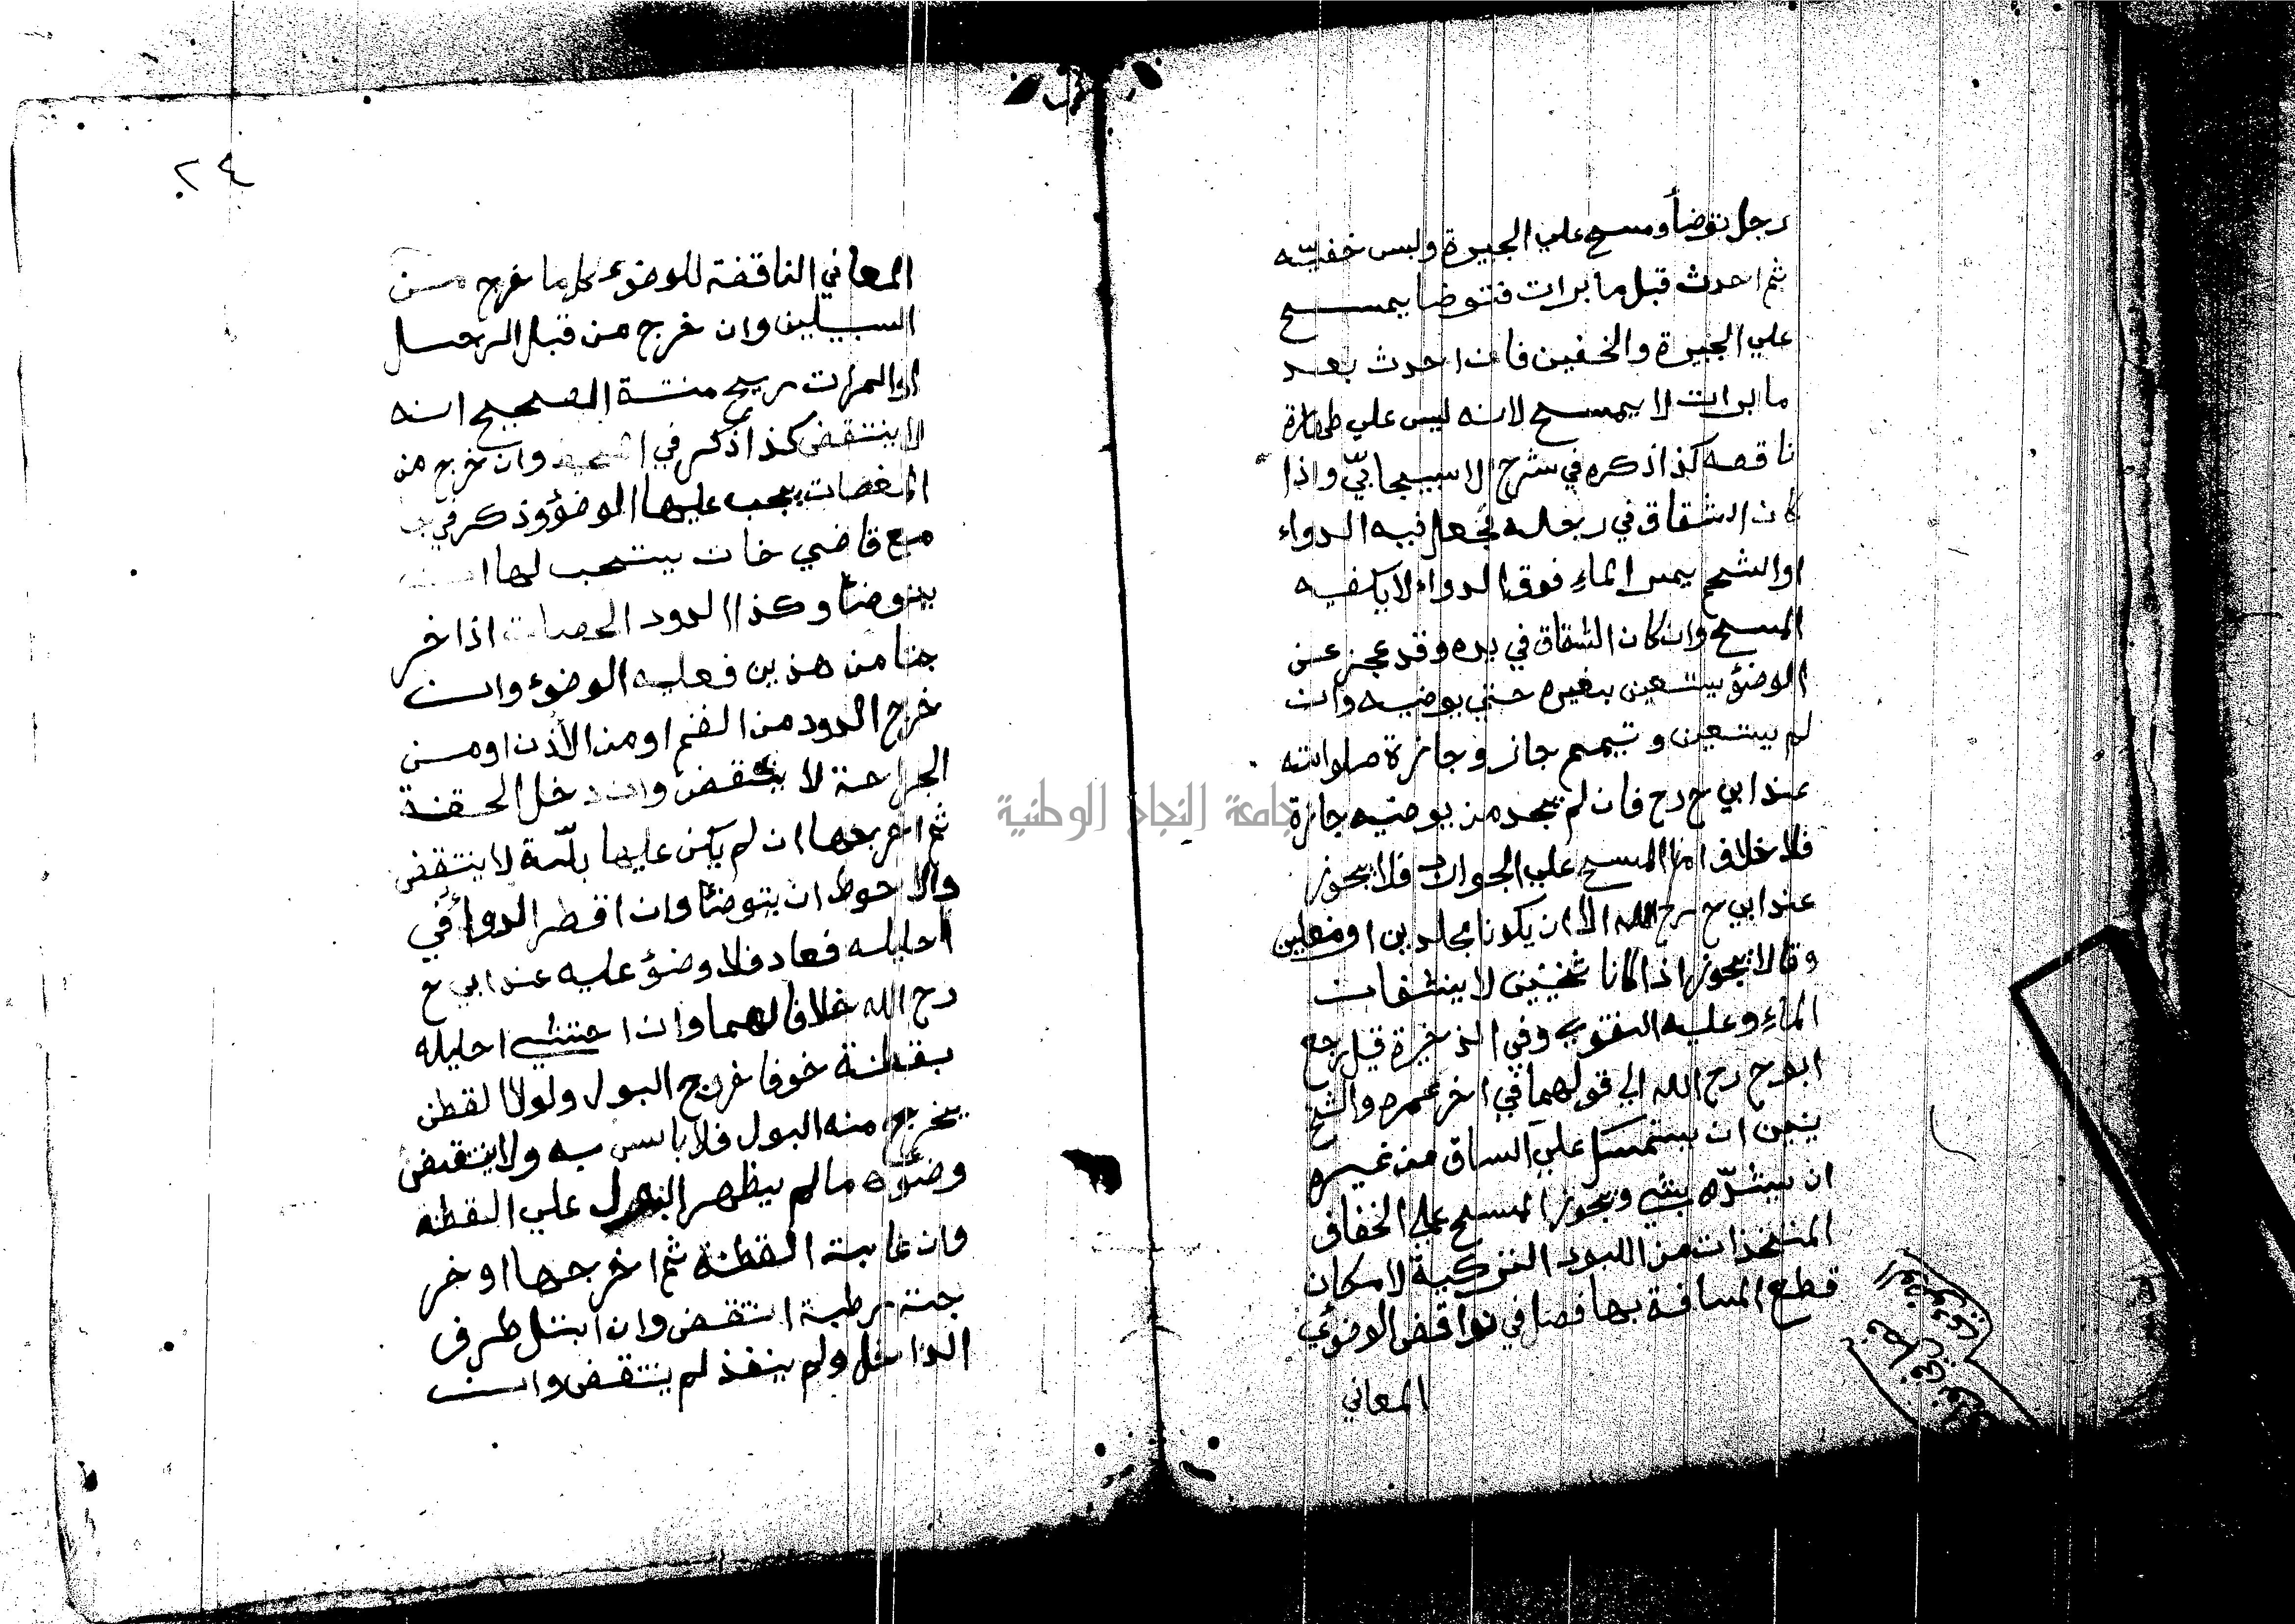 رجل توضأ ومسح علي الجبيرة ولبس خفيّه
ثم احدث قبل ما برات فتوضا يمسح
علي الجبيرة والخفين فان احدث بعد
ما برات لا يمسح لانه ليس علي طهارة
ناقصه كذا ذكره في شرح الاسبيجابيّ واذا
كان الشقاق في رجله فجعل فيه الدواء
اوالشحم يمس الماء فوق الدواء لا يكفيه
المسح وان كان الشقاق في يده وقد عجز عن
الوضؤ يستعين بغيره حتي يوضيه وان
لم يستعين وتيمم جاز وجائزة صلواته
عند ابي ح رح فان لم يجد من يوضيه جائزة
فلا خلاف اما المسح علي الجوارب فلا يجوز
عند ابي ح رح الله الا ان يكونا مجلدين او منعلين
وقالا يجوز اذا كانا ثخينين لا ينشفان
الماء وعليه الفتوي وفي الذخيرة قيل رجع
ابو ح رح الله الي قولهما في اخر عمره والثخ
ينين ان يستمسك علي الساق من غير
ان يشدّه بشي ويجوز المسح علي الخفاف
المتخذات من اللبود التركية لامكان
قطع المسافة بها فصل في نواقض الوضوئي
المعاني
٢٤
المعاني الناقضة للوضوء كل ما خرج من
السبيلين وان خرج من قبل الرجل
اوالمرات ريح منتنة الصحيح انه
لا ينتقض كذا ذكر في وان خرج من
المفضات يجب عليها الوضؤ وذكر في جا
مع قاضي خان يستحب لها ان
يتوضأ وكذا الدود الحصات اذا خر
جتا من هذين فعليه الوضوء وان
خرج الدود من الفم او من الأذن او من
الجراحة لا ينتقض وان دخل الحقنة
ثم اخرجها ان لم يكن عليها بلّة لا ينتقض
والا حوط ان يتوضأ وان اقطر الدواء في
احليله فعاد فلا وضؤ عليه عند ابي ح
رح الله خلافا لهما وان احتشي احليله
بقطنة خوفا خروج البول ولولا القطن
يخرج منه البول فلا باس به ولا ينتقض
وضؤه ما لم يظهر البول علي القطنه
وان غابت القطنة ثم اخرجها او خر
جت رطبة انتقض وان ابتل طرف
الداخل ولم ينفذ لم ينتقض وان
جامعة النجاح الوطنية